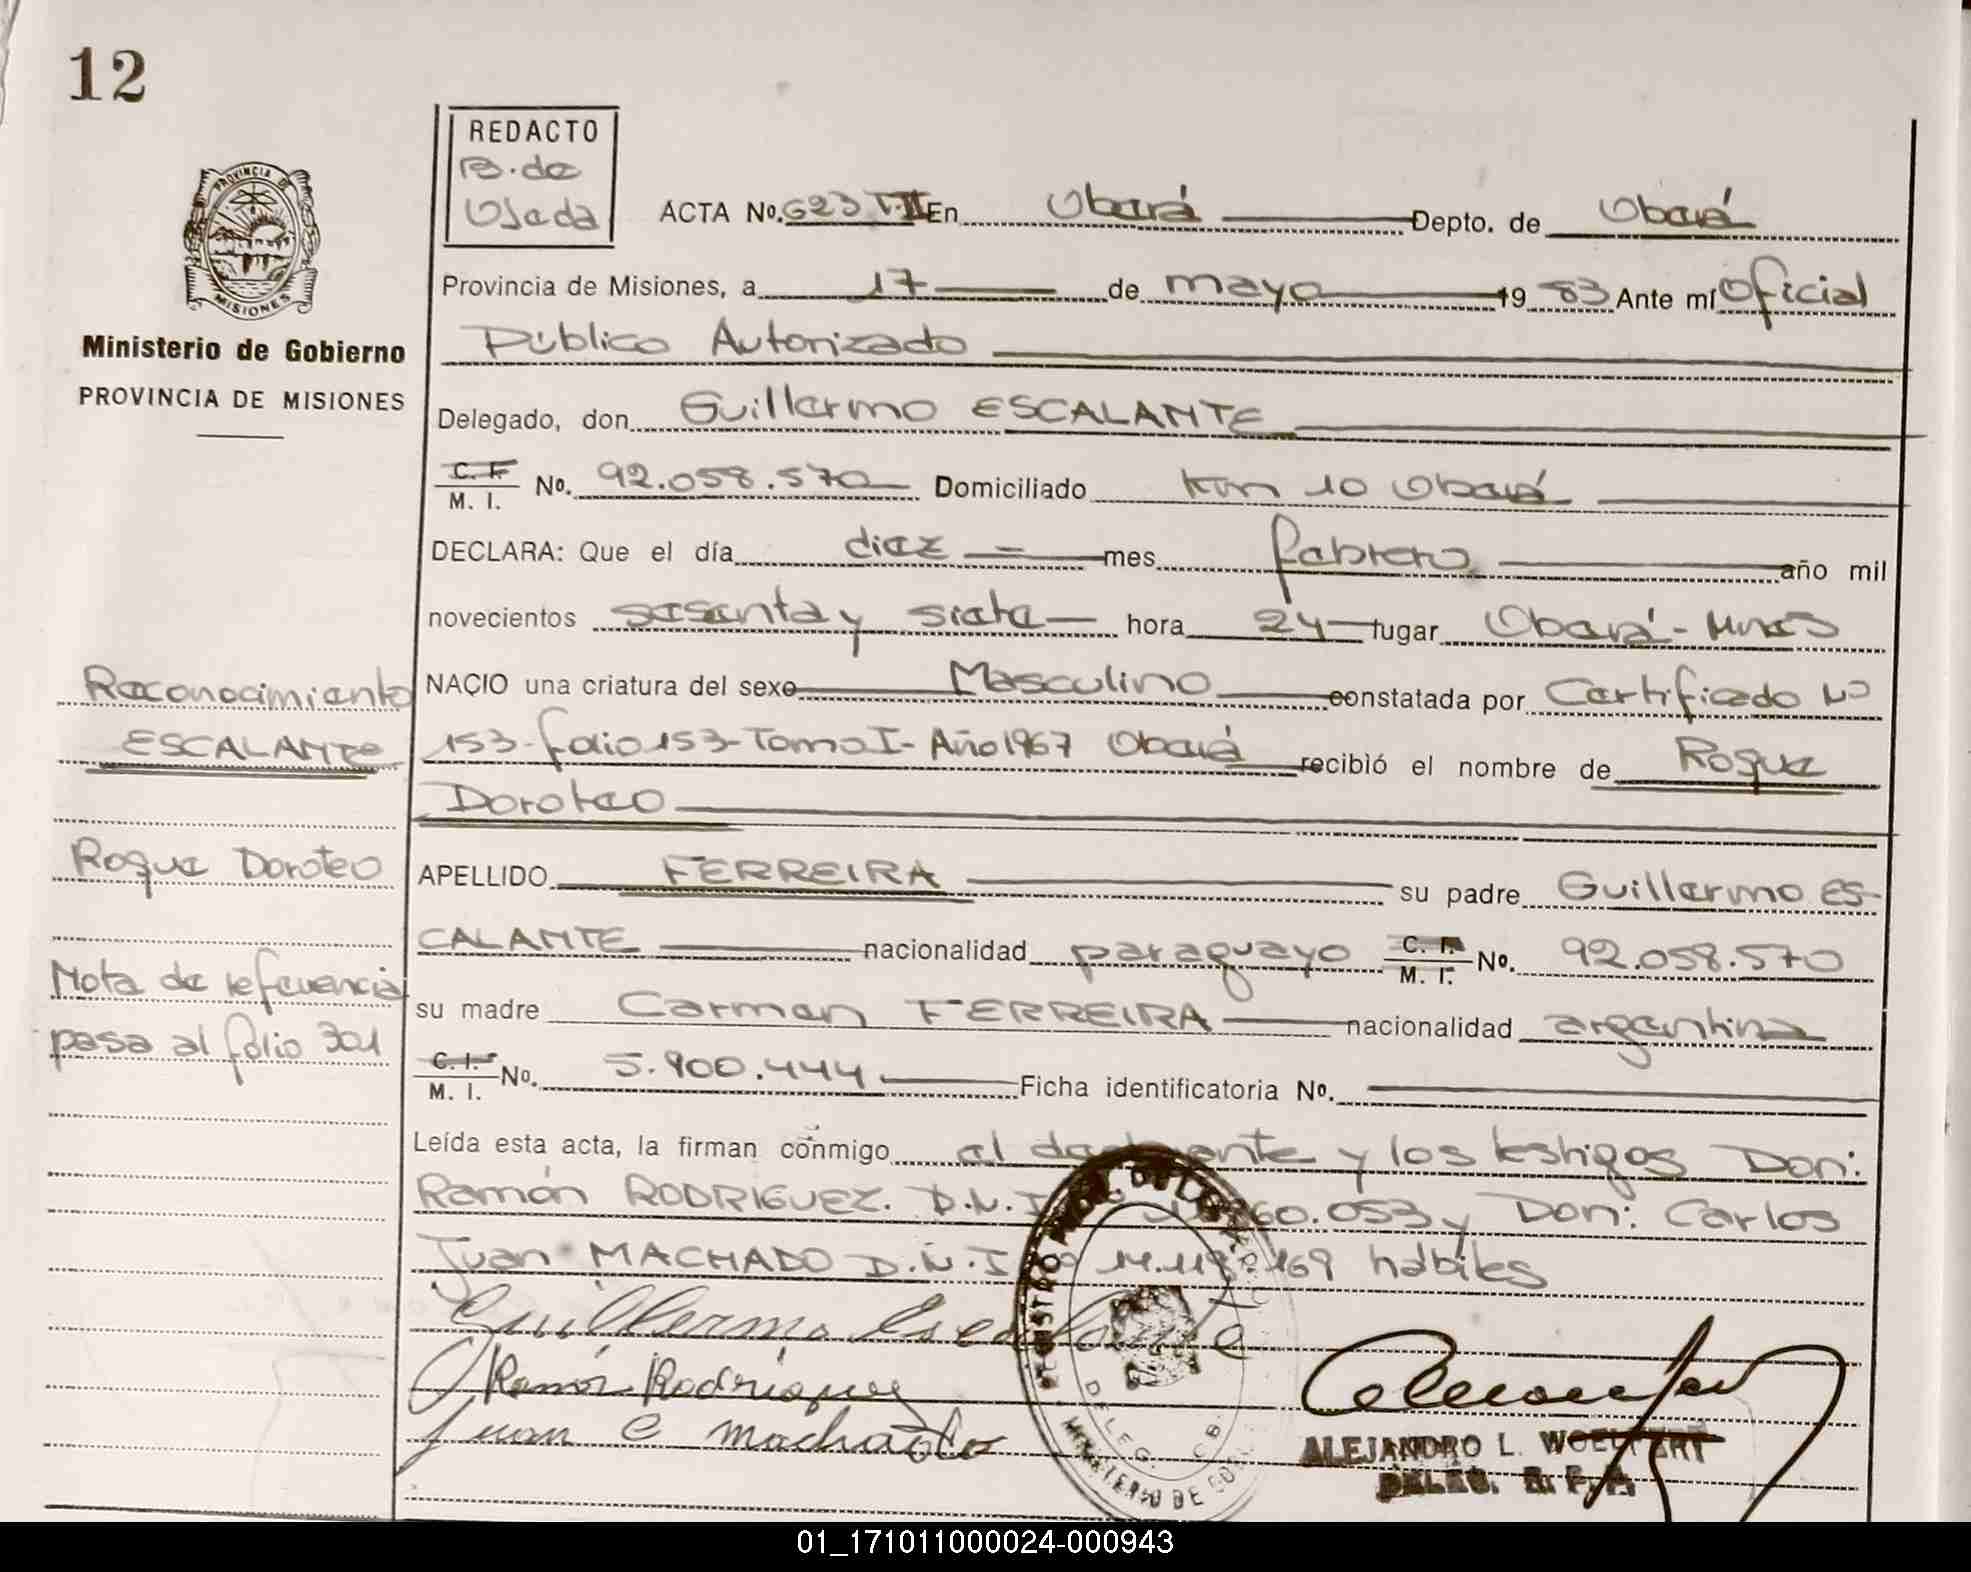 12
REDACTO
B. de
Ojeda
PROVINCIA DE
MISIONES
Ministerio de Gobierno
PROVINCIA DE MISIONES
ACTA No. 623 T.II En Oberá Depto. de Oberá
Provincia de Misiones, a 17 de mayo 19 83 Ante mí Oficial
Público Autorizado
Delegado, don Guillermo ESCALANTE
C. I. M. I. No. 92.058.570 Domiciliado Km 10 Oberá
DECLARA: Que el día diez mes febrero año mil
novecientos sesenta y siete hora 24 lugar Oberá - Mnes
NACIO una criatura del sexo Masculino constatada por Certificado Nº
153-folio 153-Tomo I-Año 1967 Oberá recibió el nombre de Roque
Doroteo
APELLIDO FERREIRA su padre Guillermo ES-
CALANTE nacionalidad paraguayo C. I. M. I. No. 92.058.570
su madre Carmen FERREIRA nacionalidad argentina
C. I. M. I. No. 5.900.444 Ficha identificatoria No.
Leída esta acta, la firman conmigo el y los testigos Don:
Ramón RODRIGUEZ. D.N.I. 060.053 y Don: Carlos
Juan MACHADO D.N.I. 169 hábiles
Reconocimiento
ESCALANTE
Roque Doroteo
Nota de referencia
pasa al folio 301
Guillermo Escalante
Ramón Rodriguez
Juan C machado
DELEG.
MINISTERIO DE
ALEJANDRO L.
DELEG. R. P. P.
01_171011000024-000943